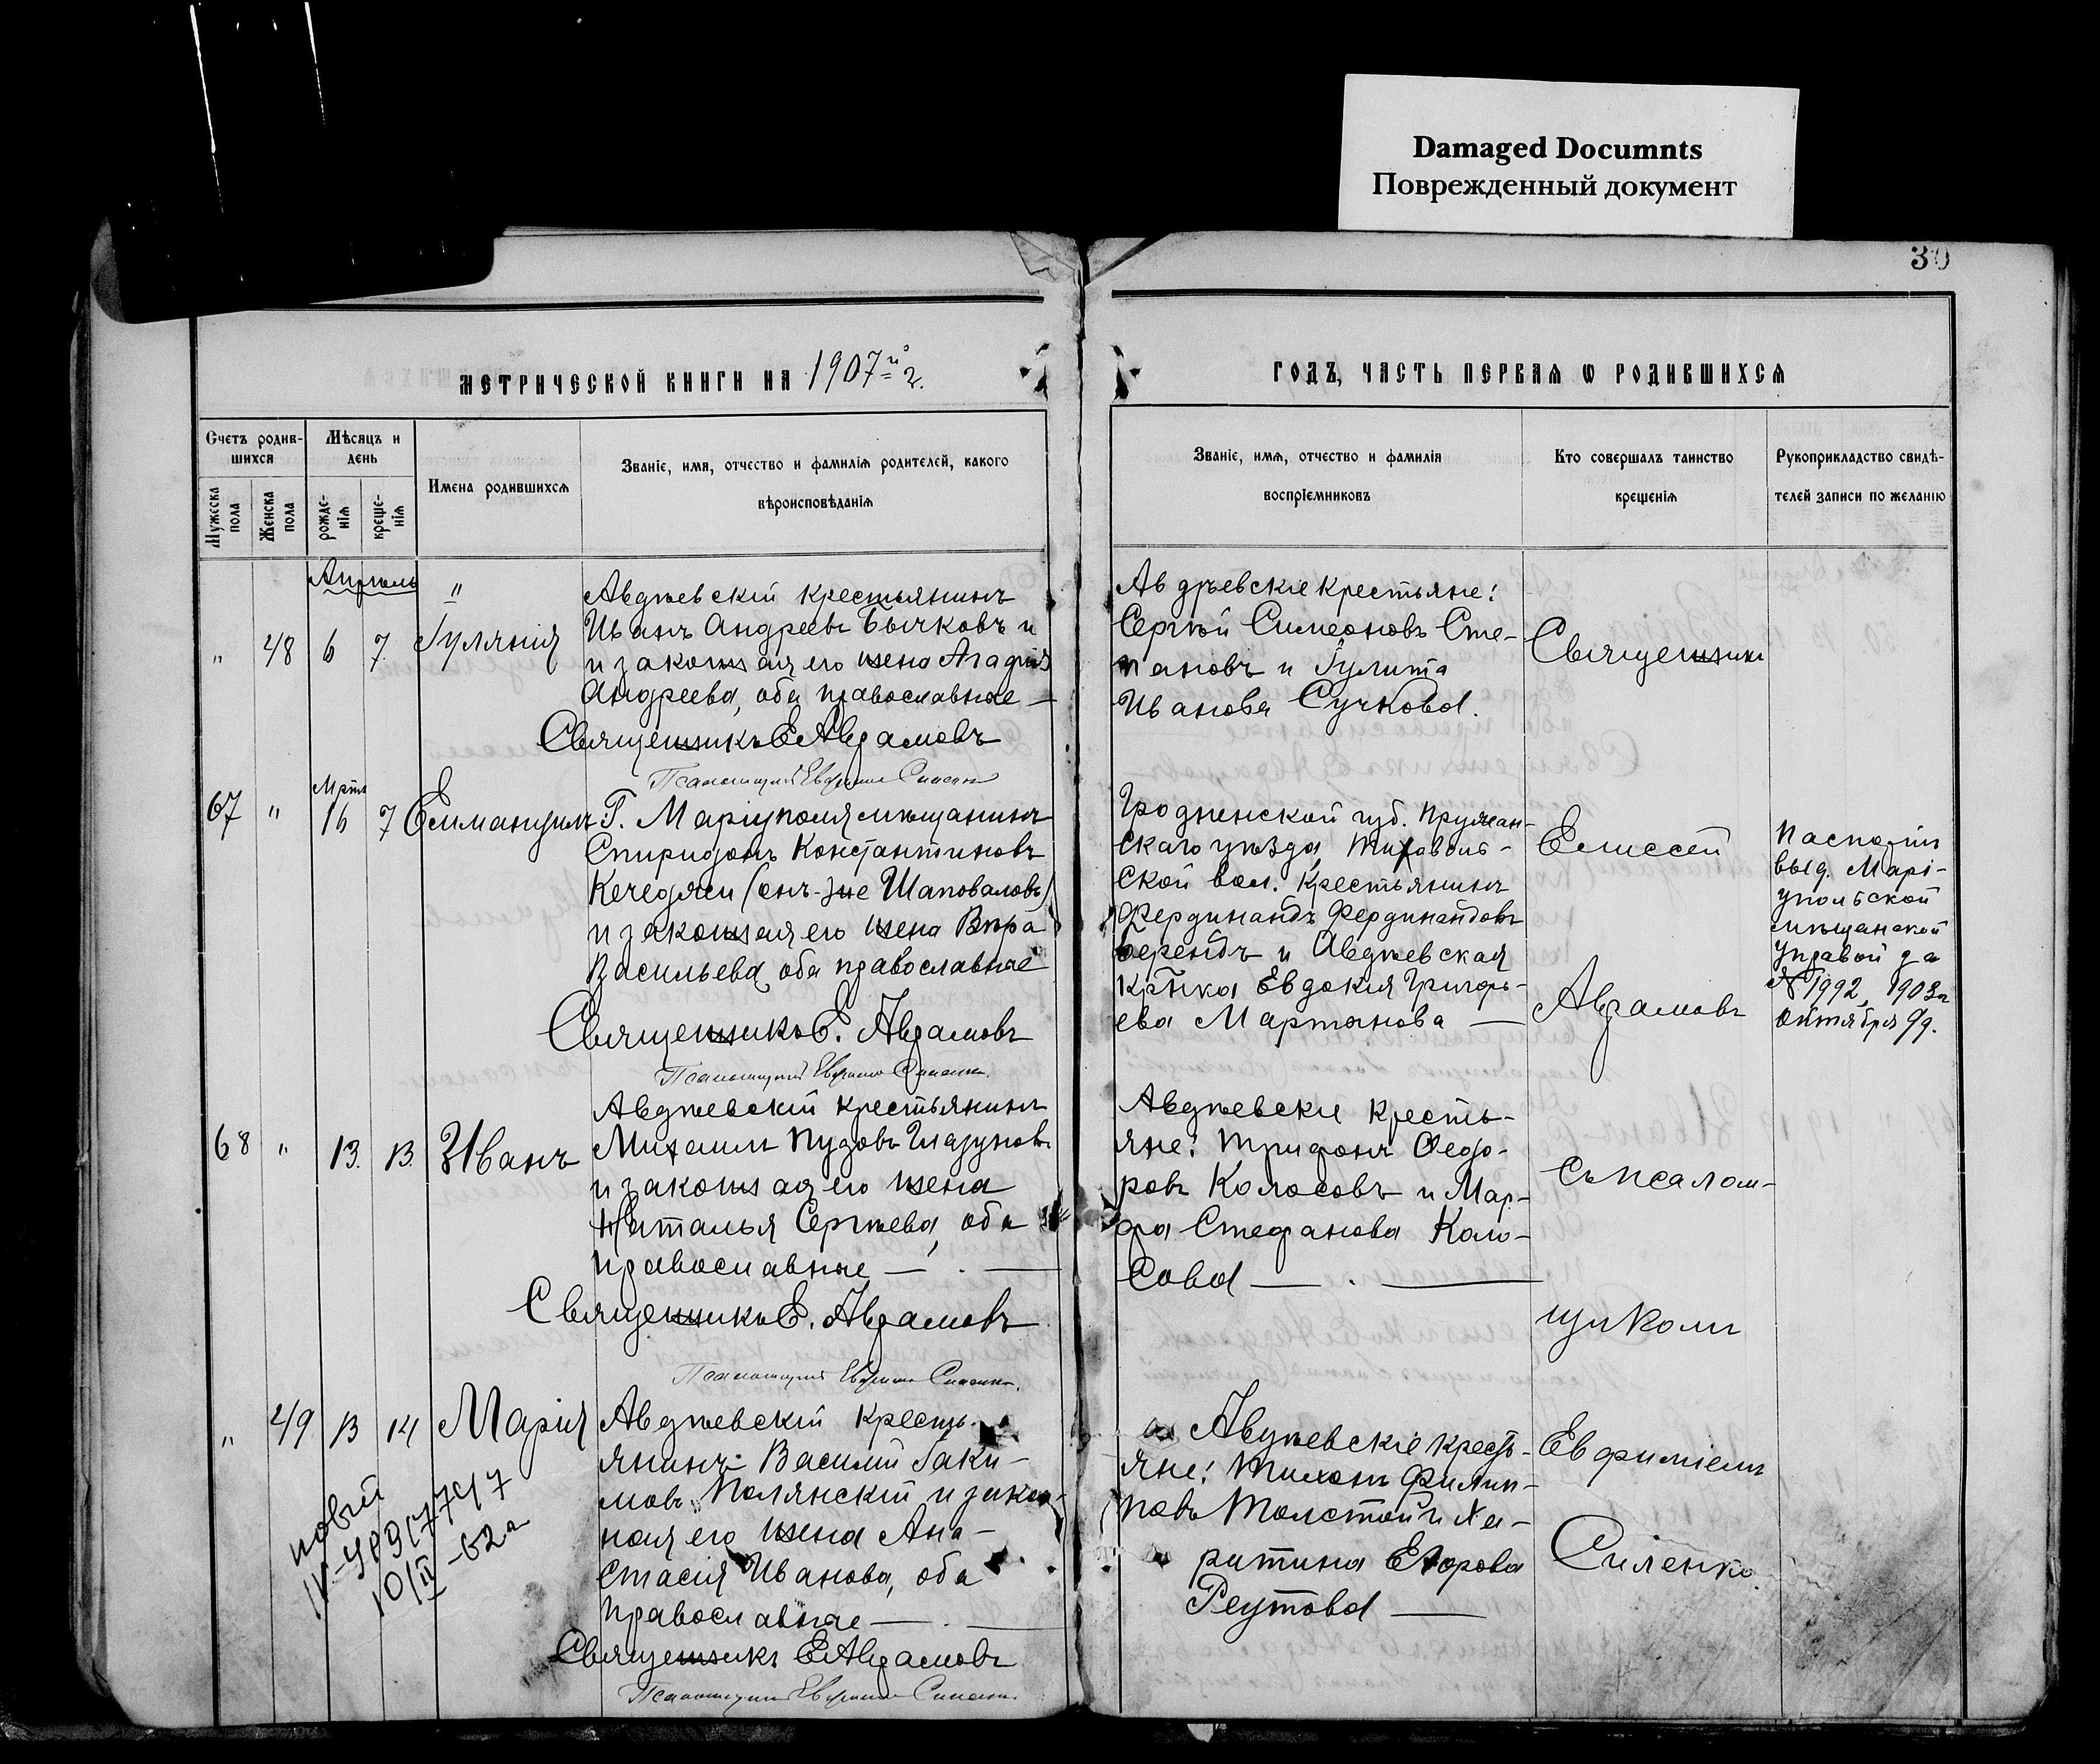 Damaged Documnts
Поврежденный документ
30
МЕТРИЧЕСКОЙ КНИГИ НА 1907й г.
ГОДЪ, ЧАСТЬ ПЕРВАЯ Ѡ РОДИВШИХСЯ
Счетъ родив-
шихся
Мѣсяцъ и
день
Мужеска
пола
Женска
пола
рожде-
нія
креще-
нія
Имена родившихся
Званіе, имя, отчество и фамилія родителей, какого
вѣроисповѣданія
Званіе, имя, отчество и фамилія
воспріемниковъ
Кто совершалъ таинство
крещенія
Рукоприкладство свидѣ-
телей записи по желанію
Апрѣль
"
" 48 6 7 Іулянія
Авдѣевскій крестьянинъ
Иванъ Андреевъ Бычковъ и
и законная его жена Агафія
Андреева, оба православные —
Священникъ Е Авдамовъ
Псаломщикъ Евфимій Силенко
Авдѣевскіе крестьяне:
Сергѣй Симеоновъ Сте-
пановъ и Іулита
Иванова Сучкова.
Священникъ
67 " Мртъ 16 7 Еммануилъ
Г. Маріуполя мѣщанинъ
Спиридонъ Константиновъ
Кечеджи (онъ-же Шаповаловъ)
и законная его жена Вѣра
Васильева, оба православные
Священникъ Е. Авдамовъ
Псаломщикъ Евфимій Силенко.
Гродненской губ. Пружан-
скаго уѣзда,
ской вол. крестьянинъ
Фердинандъ Фердинандовъ
Берендъ и Авдѣевская
кр-нка Евдокія Григорь-
ева Мартынова —
Елисей
Авдамовъ
Паспортъ
выд. Марі-
упольской
мѣщанской
управой за
№ 1992, 1903 г
Октября 9д.
68 " 13. 13. Иванъ
Авдѣевскій крестьянинъ
Михаилъ Пудовъ Глазуновъ
и законная его жена
Наталья Сергѣева, оба
православные — . —
Священникъ Е. Авдамовъ
Псаломщикъ Евфимій Силенко.
Авдѣевскіе кресть-
яне: Трифонъ Ѳеодо-
ровъ Колосовъ и Мар-
фа Стефанова Коло-
сова — . —
съ псалом-
щикомъ
" 49 13 14 Марія
Авдѣевскій кресть-
янинъ Василій Іаки-
мовъ Полянскій и закон-
ная его жена Ана-
стасія Иванова, оба
православные — . —
Священникъ Е Авдамовъ
Псаломщикъ Евфимій Силенко.
Авдѣевскіе кресть-
яне: Тихонъ Филип-
повъ Толстой и Ха-
ритина Егорова
Реутова —
Евфиміемъ
Силенко.
новый
10/II-62 г